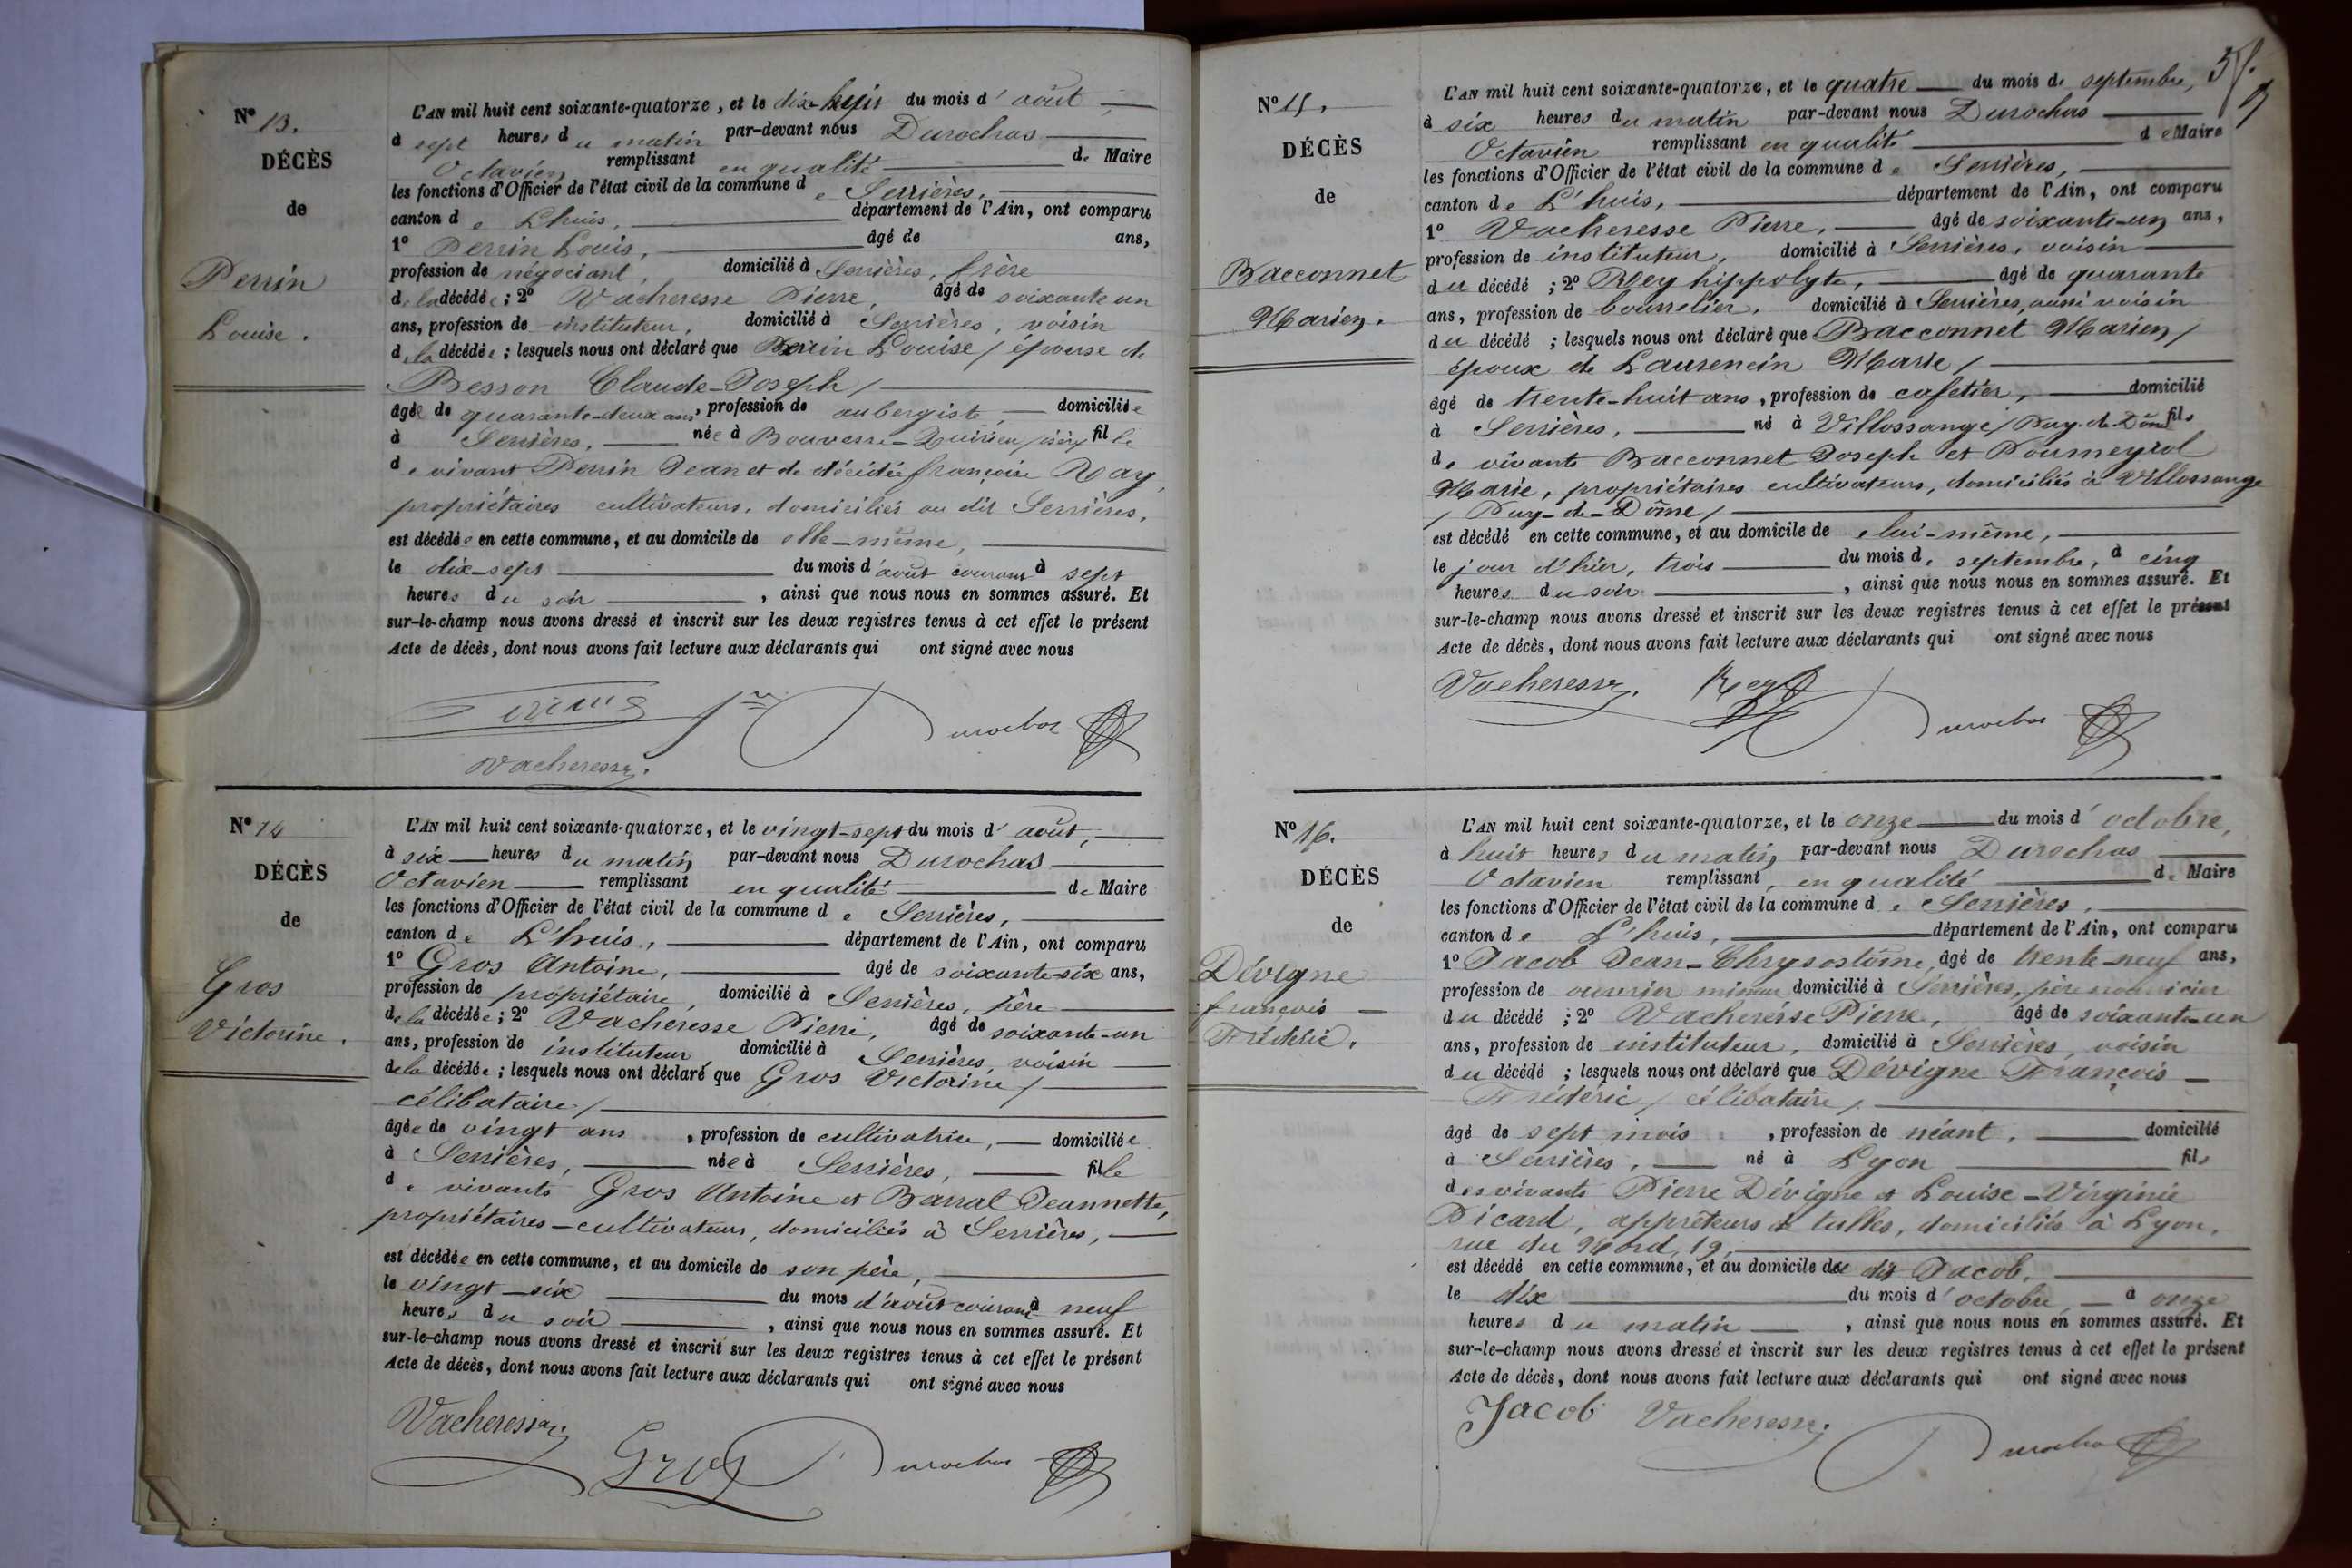 N° 13.
DÉCÈS
de
Perrin
Louise.
L'AN mil huit cent soixante-quatorze, et le dix-huit du mois d'août
à sept heures du matin par-devant nous Durochas
Octavien remplissant en qualité de Maire
les fonctions d'Officier de l'état civil de la commune de Serrières,
canton de Lhuis, département de l'Ain, ont comparu
1° Perrin Louis, âgé de ans,
profession de négociant, domicilié à Serrières, frère
de la décédée; 2° Vacheresse Pierre, âgé de soixante un
ans, profession de instituteur, domicilié à Serrières, voisin
de la décédée; lesquels nous ont déclaré que Perrin Louise / épouse de
Besson Claude-Joseph /
âgée de quarante-deux ans, profession de aubergiste, domiciliée
à Serrières, née à Bouvesse-Quirieu / isère / fille
de vivant Perrin Jean et de décédée françoise Ray,
propriétaires cultivateurs, domiciliés au dit Serrières,
est décédée en cette commune, et au domicile de elle-même,
le dix-sept du mois d'août courant à sept
heures du soir, ainsi que nous nous en sommes assuré. Et
sur-le-champ nous avons dressé et inscrit sur les deux registres tenus à cet effet le présent
Acte de décès, dont nous avons fait lecture aux déclarants qui ont signé avec nous
Durochas
Vacheresse.
N° 14
DÉCÈS
de
Gros
Victorine.
L'AN mil huit cent soixante-quatorze, et le vingt-sept du mois d'août,
à six heures du matin par-devant nous Durochas
Octavien remplissant en qualité de Maire
les fonctions d'Officier de l'état civil de la commune de Serrières,
canton de L'huis, département de l'Ain, ont comparu
1° Gros Antoine, âgé de soixante-six ans,
profession de propriétaire, domicilié à Serrières, père
de la décédée; 2° Vacheresse Pierre, âgé de soixante-un
ans, profession de instituteur domicilié à Serrières, voisin
de la décédée; lesquels nous ont déclaré que Gros Victorine /
célibataire /
âgée de vingt ans, profession de cultivatrice, domiciliée
à Serrières, née à Serrières, fille
de vivants Gros Antoine et Barral Jeannette,
propriétaires-cultivateurs, domiciliés à Serrières,
est décédée en cette commune, et au domicile de son père,
le vingt-six du mois d'août courant à neuf
heures du soir, ainsi que nous nous en sommes assuré. Et
sur-le-champ nous avons dressé et inscrit sur les deux registres tenus à cet effet le présent
Acte de décès, dont nous avons fait lecture aux déclarants qui ont signé avec nous
Vacheresse
Gros Durochas
N° 15.
DÉCÈS
de
Bacconnet
Marien.
L'AN mil huit cent soixante-quatorze, et le quatre du mois de septembre,
à six heures du matin par-devant nous Durochas
Octavien remplissant en qualité de Maire
les fonctions d'Officier de l'état civil de la commune de Serrières,
canton de L'huis, département de l'Ain, ont comparu
1° Vacheresse Pierre, âgé de soixante-un ans,
profession de instituteur, domicilié à Serrières, voisin
du décédé; 2° Rey hippolyte, âgé de quarante
ans, profession de bourrelier, domicilié à Serrières, aussi voisin
du décédé; lesquels nous ont déclaré que Bacconnet Marien /
époux de Laurencin Marie /
âgé de trente-huit ans, profession de cafetier, domicilié
à Serrières, né à Villossange / Puy-de-Dôme fils
de vivants Bacconnet Joseph et Poumeyrol
Marie, propriétaires cultivateurs, domiciliés à Villossange
/ Puy-de-Dôme /
est décédé en cette commune, et au domicile de lui-même,
le jour d'hier, trois du mois de septembre, à cinq
heures du soir, ainsi que nous nous en sommes assuré. Et
sur-le-champ nous avons dressé et inscrit sur les deux registres tenus à cet effet le présent
Acte de décès, dont nous avons fait lecture aux déclarants qui ont signé avec nous
Vacheresse. Rey
Durochas
N° 16.
DÉCÈS
de
Dévigne
françois
Frédéric.
L'AN mil huit cent soixante-quatorze, et le onze du mois d'octobre,
à huit heures du matin, par-devant nous Durochas
Octavien remplissant, en qualité de Maire
les fonctions d'Officier de l'état civil de la commune de Serrières,
canton de L'huis, département de l'Ain, ont comparu
1° Jacob Jean-Chrysostôme, âgé de trente-neuf ans,
profession de ouvrier mineur domicilié à Serrières, père nourricier
du décédé; 2° Vacheresse Pierre, âgé de soixante-un
ans, profession de instituteur, domicilié à Serrières, voisin
du décédé; lesquels nous ont déclaré que Dévigne François
Frédéric / célibataire /
âgé de sept mois, profession de néant, domicilié
à Serrières, né à Lyon fils
des vivants Pierre Dévigne et Louise-Virginie
Picard, apprêteurs de tulles, domiciliés à Lyon,
rue du Nord, 19,
est décédé en cette commune, et au domicile du dit Jacob,
le dix du mois d'octobre, à onze
heures du matin, ainsi que nous nous en sommes assuré. Et
sur-le-champ nous avons dressé et inscrit sur les deux registres tenus à cet effet le présent
Acte de décès, dont nous avons fait lecture aux déclarants qui ont signé avec nous
Jacob Vacheresse
Durochas